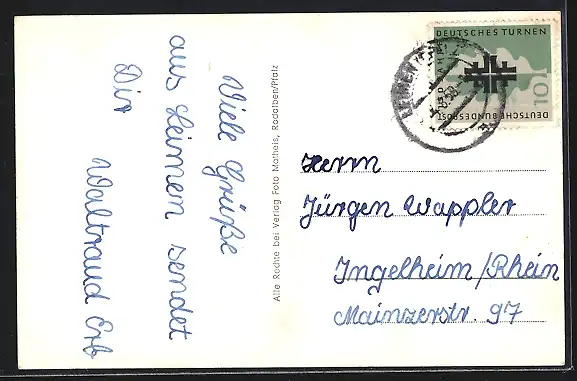 Viele Grüße
aus Leimen sendet
Dir
Waltraud Erb
Alle Rechte bei Verlag Foto Matheis, Rodalben/Pfalz
DEUTSCHES TURNEN
150 JAHRE
10
DEUTSCHE BUNDESPOST
LEIMEN
Herrn
Jürgen Wappler
Ingelheim/Rhein
Mainzerstr. 97